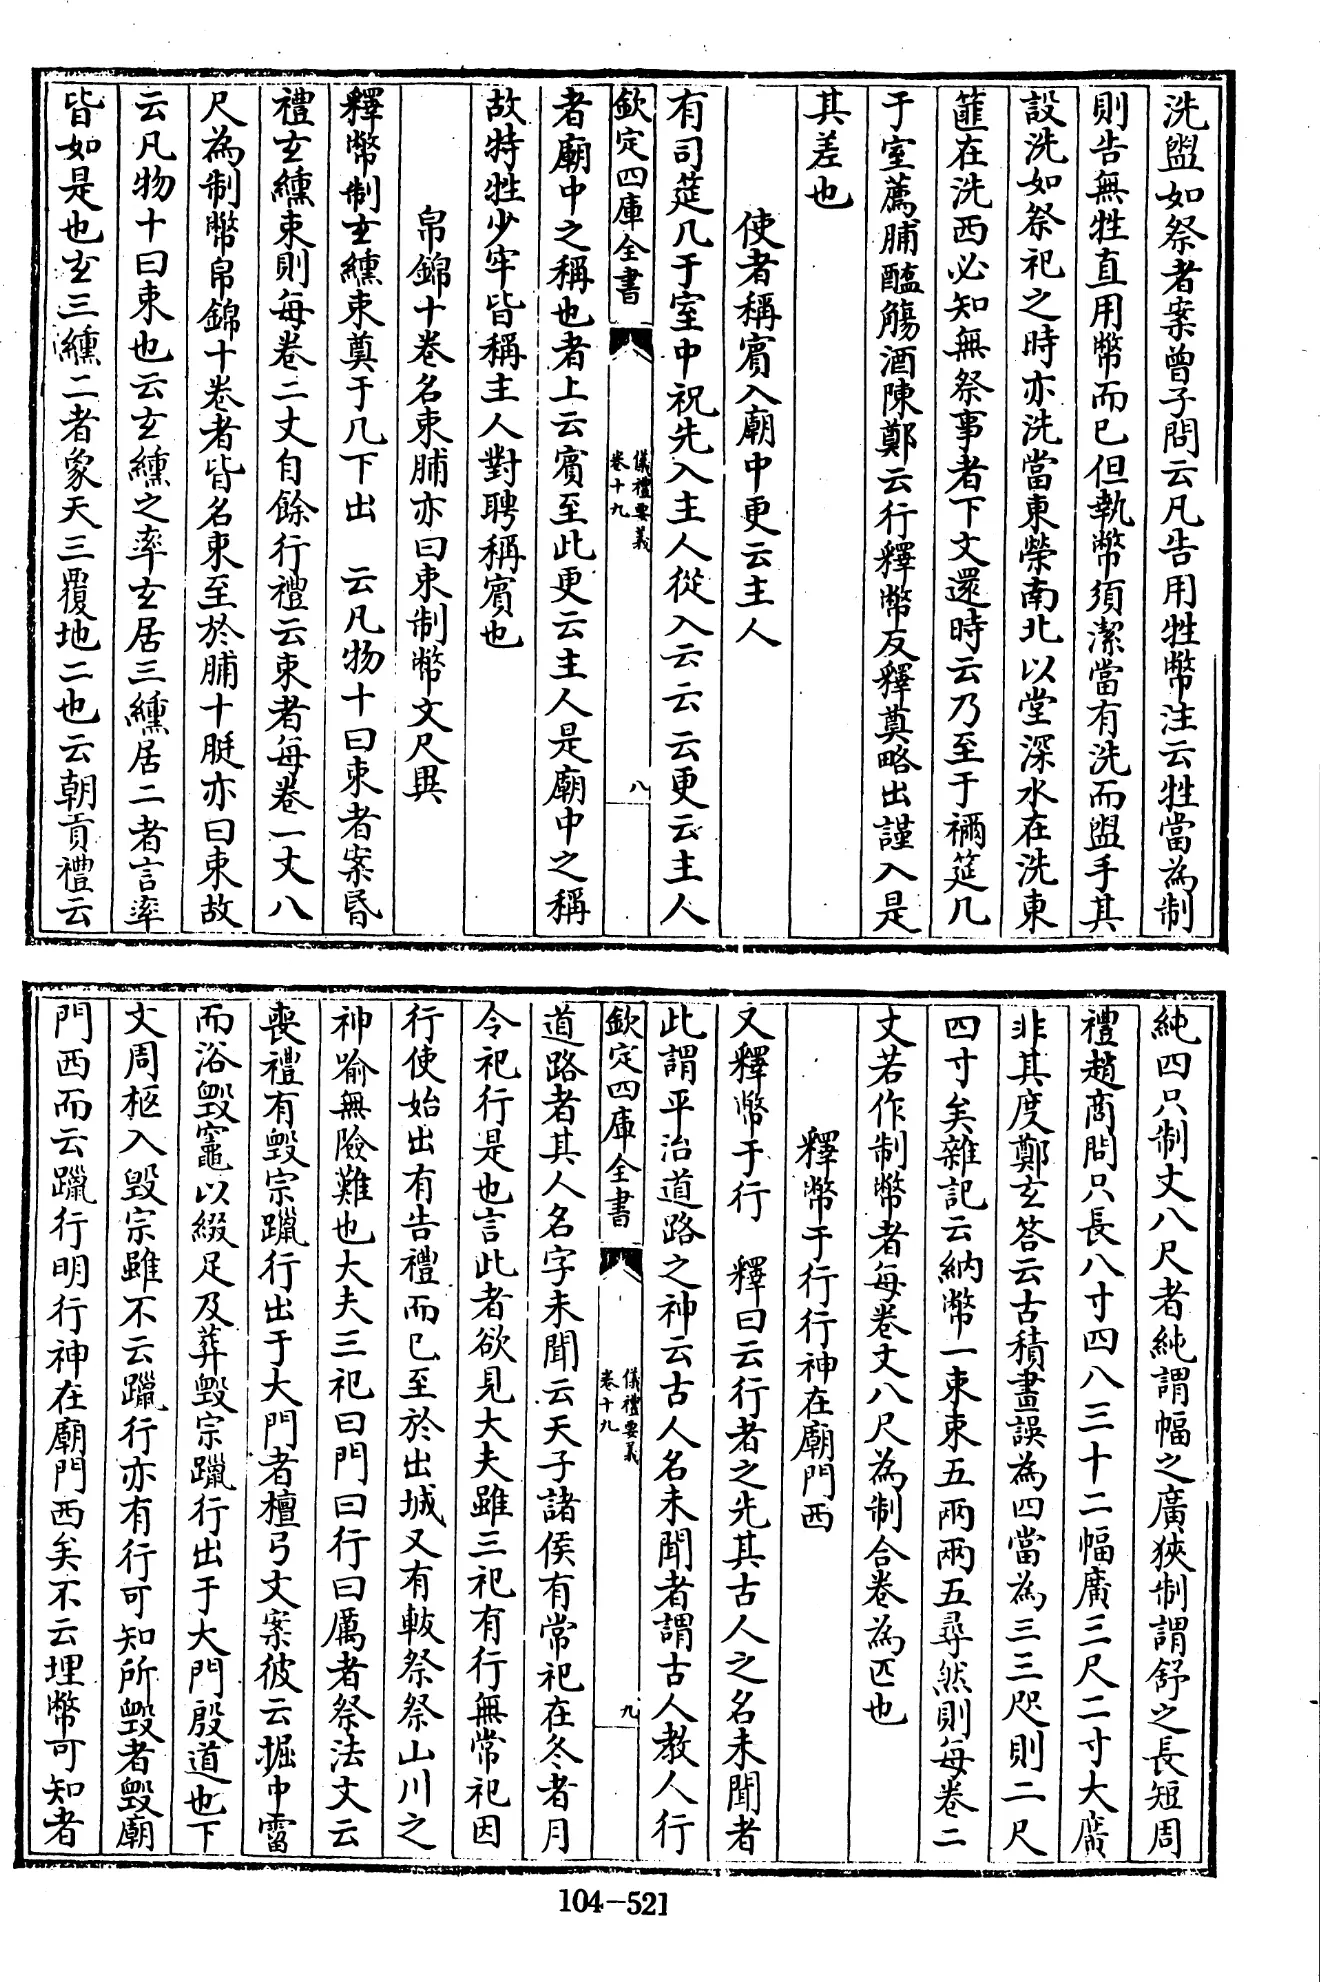 洗盥如祭者案曾子問云凡告用牲幣注云牲當為制
則告無牲直用幣而已但執幣須潔當有洗而盥手其
設洗如祭祀之時亦洗當東榮南北以堂深水在洗東
篚在洗西必知無祭事者下文還時云乃至于禰筵几
于室薦脯醢觴酒陳鄭云行釋幣反釋奠略出謹入是
其差也
使者稱賔入廟中更云主人
有司筵几于室中祝先入主人從入云云云更云主人
欽定四庫全書
儀禮要義
卷十九
八
者廟中之稱也者上云賔至此更云主人是廟中之稱
故特牲少牢皆稱主人對聘稱賔也
帛錦十卷名束脯亦曰束制幣文尺異
釋幣制玄纁束奠于几下出 云凡物十曰束者案昏
禮玄纁束則每卷二丈自餘行禮云束者每卷一丈八
尺為制幣帛錦十卷者皆名束至於脯十脡亦曰束故
云凡物十曰束也云玄纁之率玄居三纁居二者言率
皆如是也玄三纁二者象天三覆地二也云朝貢禮云
純四只制丈八尺者純謂幅之廣狹制謂舒之長短周
禮趙商問只長八寸四八三十二幅廣三尺二寸大廣
非其度鄭玄答云古積畫誤為四當為三三咫則二尺
四寸矣雜記云納幣一束束五兩兩五尋然則每卷二
丈若作制幣者每卷丈八尺為制合卷為匹也
釋幣于行行神在廟門西
又釋幣于行 釋曰云行者之先其古人之名未聞者
此謂平治道路之神云古人名未聞者謂古人教人行
欽定四庫全書
儀禮要義
卷十九
九
道路者其人名字未聞云天子諸侯有常祀在冬者月
令祀行是也言此者欲見大夫雖三祀有行無常祀因
行使始出有告禮而已至於出城又有軷祭祭山川之
神喻無險難也大夫三祀曰門曰行曰厲者祭法文云
喪禮有毀宗躐行出于大門者檀弓文案彼云掘中霤
而浴毀竈以綴足及葬毀宗躐行出于大門殷道也下
文周柩入毀宗雖不云躐行亦有行可知所毀者毀廟
門西而云躐行明行神在廟門西矣不云埋幣可知者
104-521